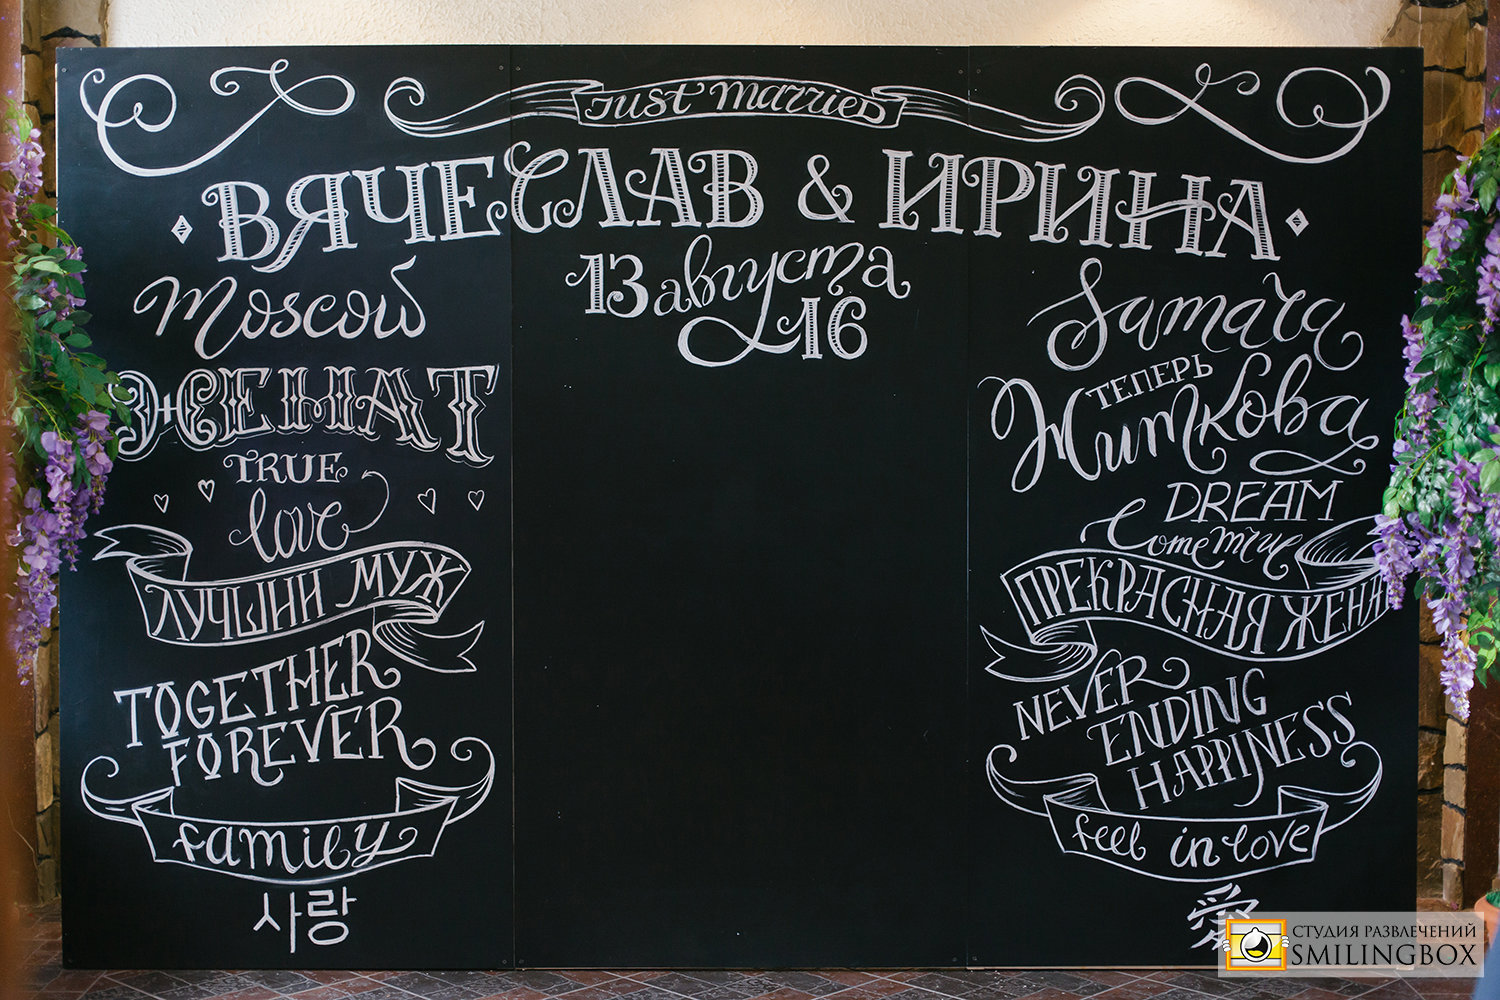 Just married
ВЯЧЕСЛАВ & ИРИНА
13 августа
16
Moscow
ЖЕНАТ
TRUE
love
ЛУЧШИЙ МУЖ
TOGETHER
FOREVER
family
사랑
Samara
ТЕПЕРЬ
Житкова
DREAM
Come true
ПРЕКРАСНАЯ ЖЕНА
NEVER
ENDING
HAPPINESS
feel in love
愛
СТУДИЯ РАЗВЛЕЧЕНИЙ
SMILINGBOX